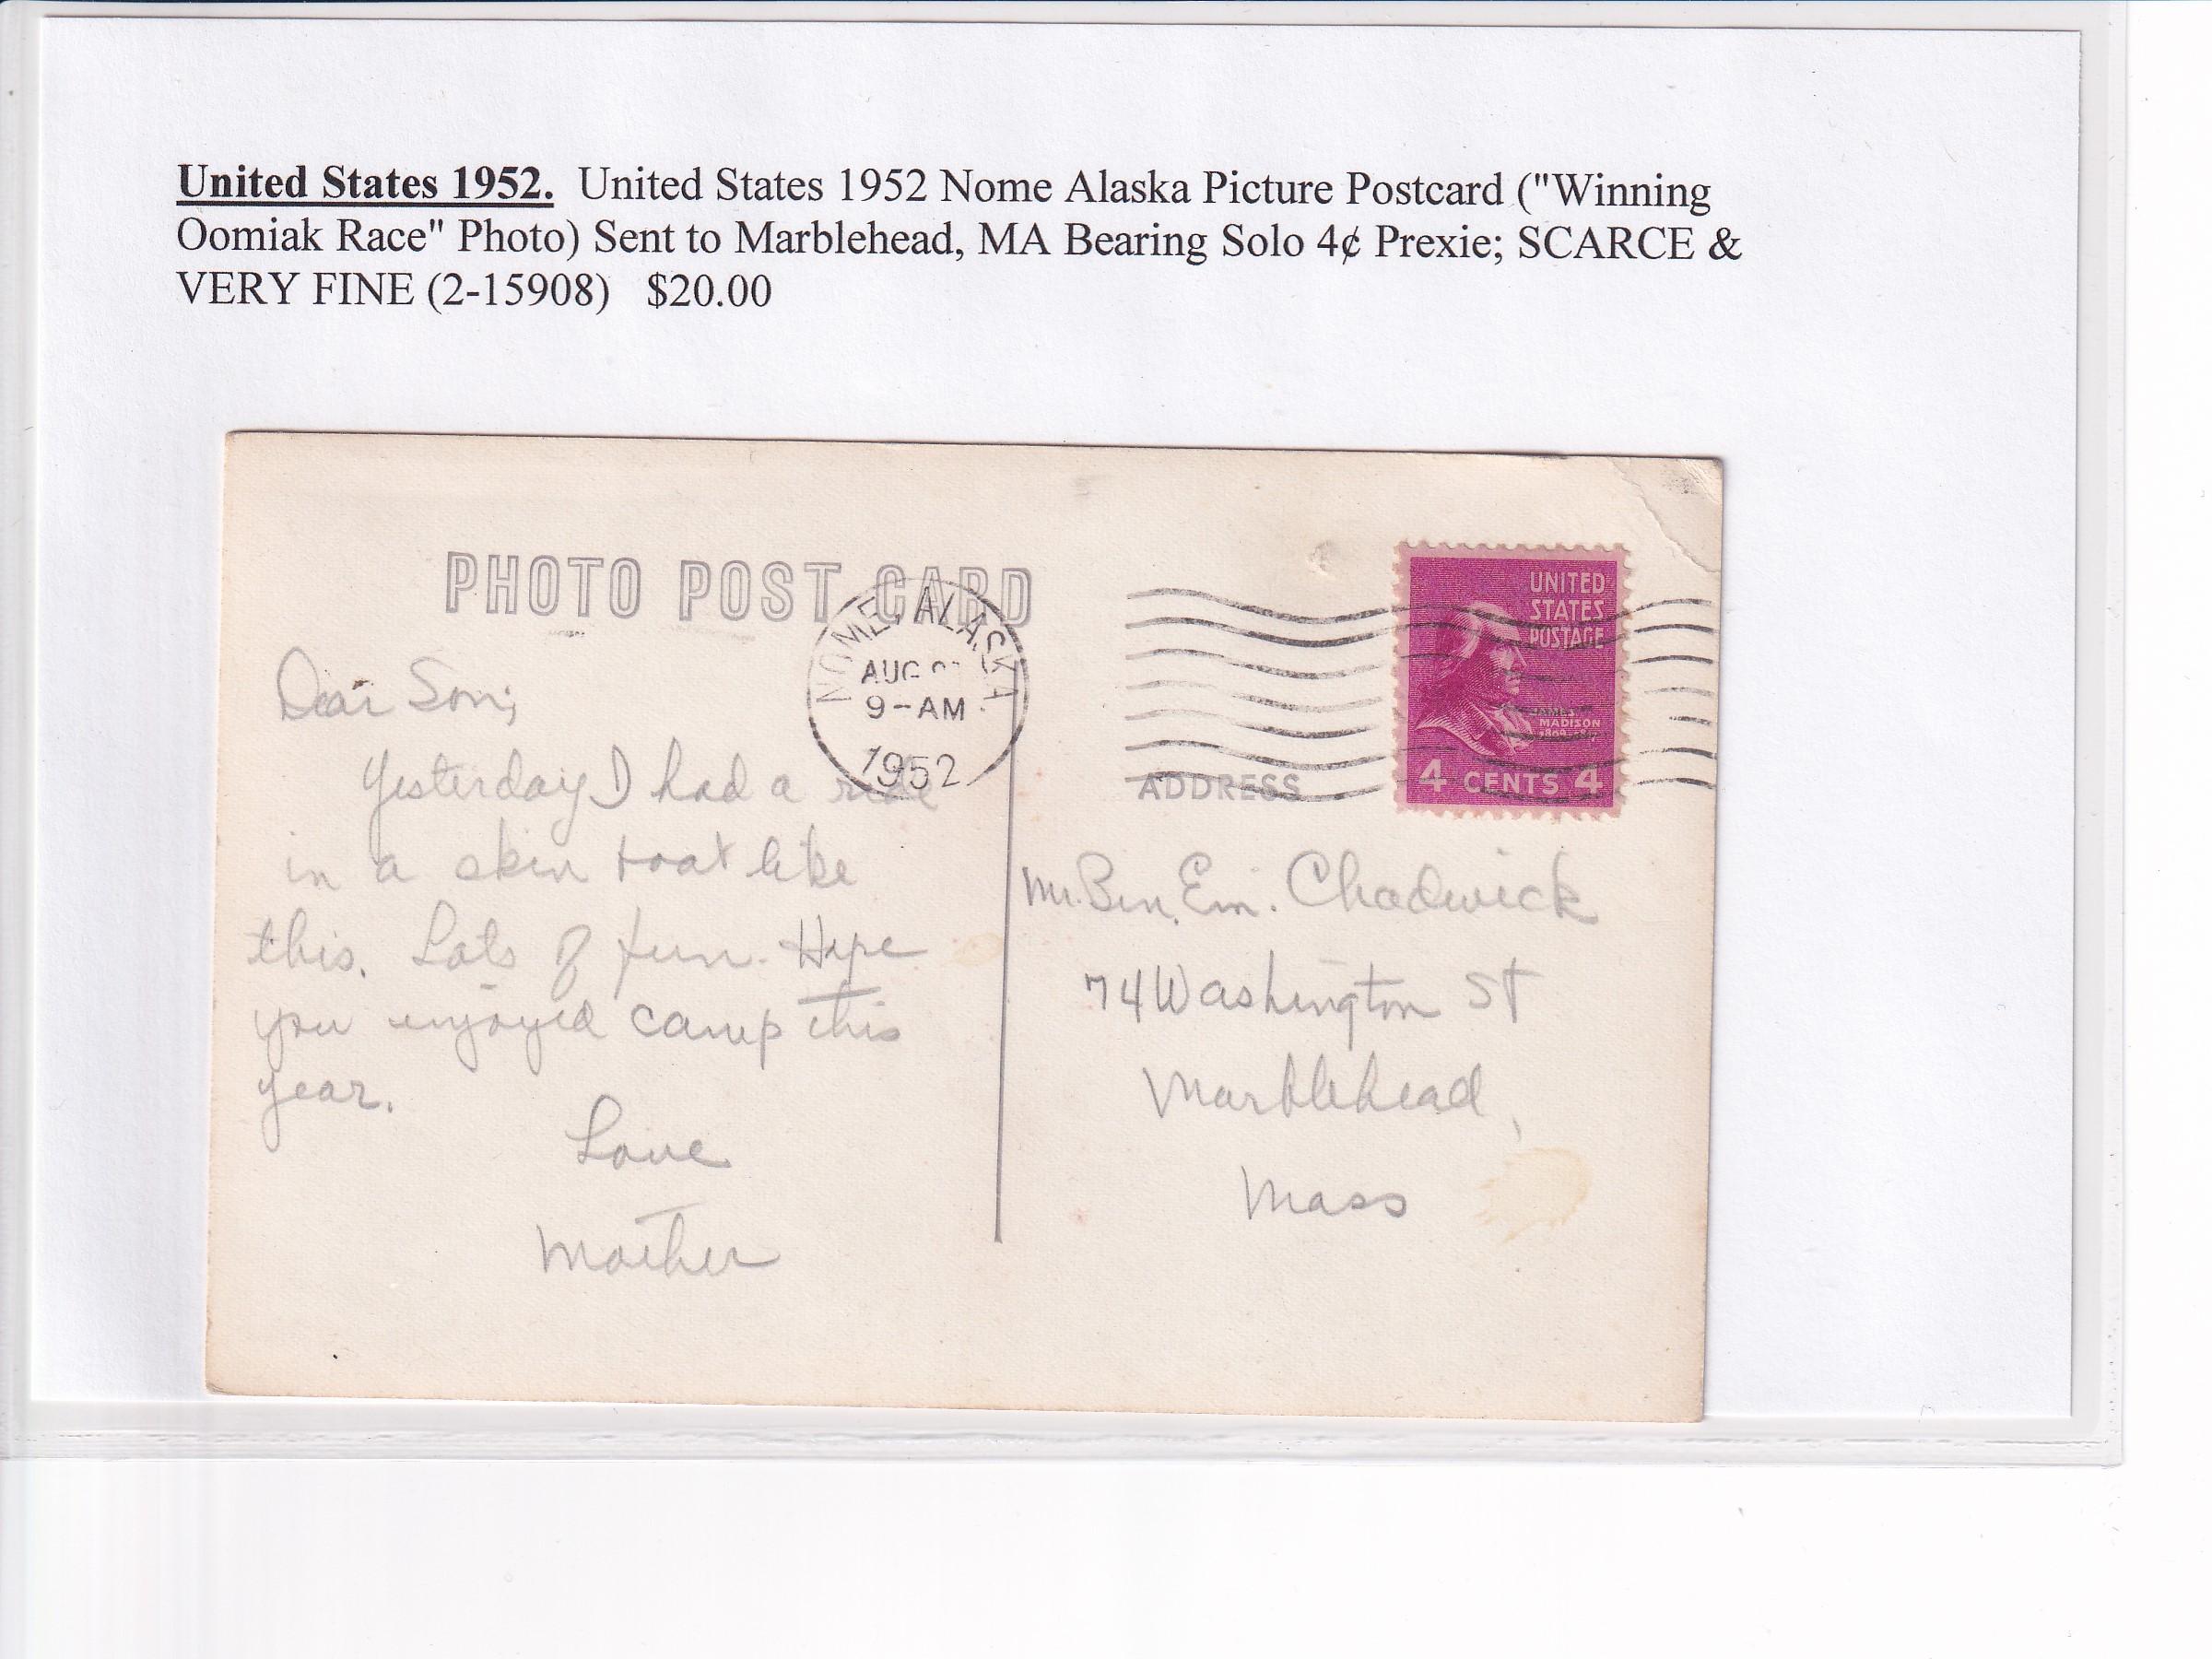 United States 1952. United States 1952 Nome Alaska Picture Postcard ("Winning
Oomiak Race" Photo) Sent to Marblehead, MA Bearing Solo 4¢ Prexie; SCARCE &
VERY FINE (2-15908) $20.00
PHOTO POST CARD
NOME, ALASKA
AUG
9-AM
1952
UNITED
STATES
POSTAGE
JAMES
MADISON
1809
4 CENTS 4
ADDRESS
Dear Son;
Yesterday I had a ride
in a skin boat like
this. Lots of fun. Hope
you enjoyed camp this
year.
Love
Mother
Mr. Ben. Em. Chadwick
74 Washington St
Marblehead,
Mass